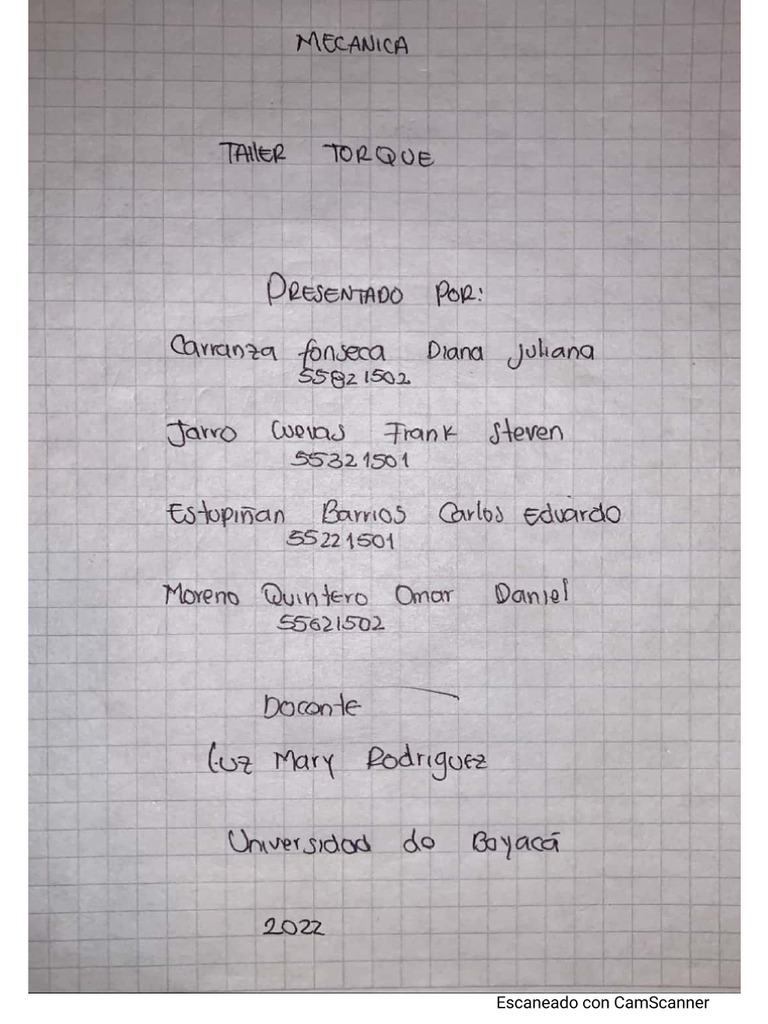 MECANICA
TAllER TORQUE
PRESENTADO POR:
Carranza fonseca Diana Juliana
55821502
Jarro Cuevas Frank Steven
55321501
Estupiñan Barrios Carlos Eduardo
55221501
Moreno Quintero Omar Daniel
55621502
Docente
Luz Mary Rodriguez
Universidad de Boyacá
2022
Escaneado con CamScanner